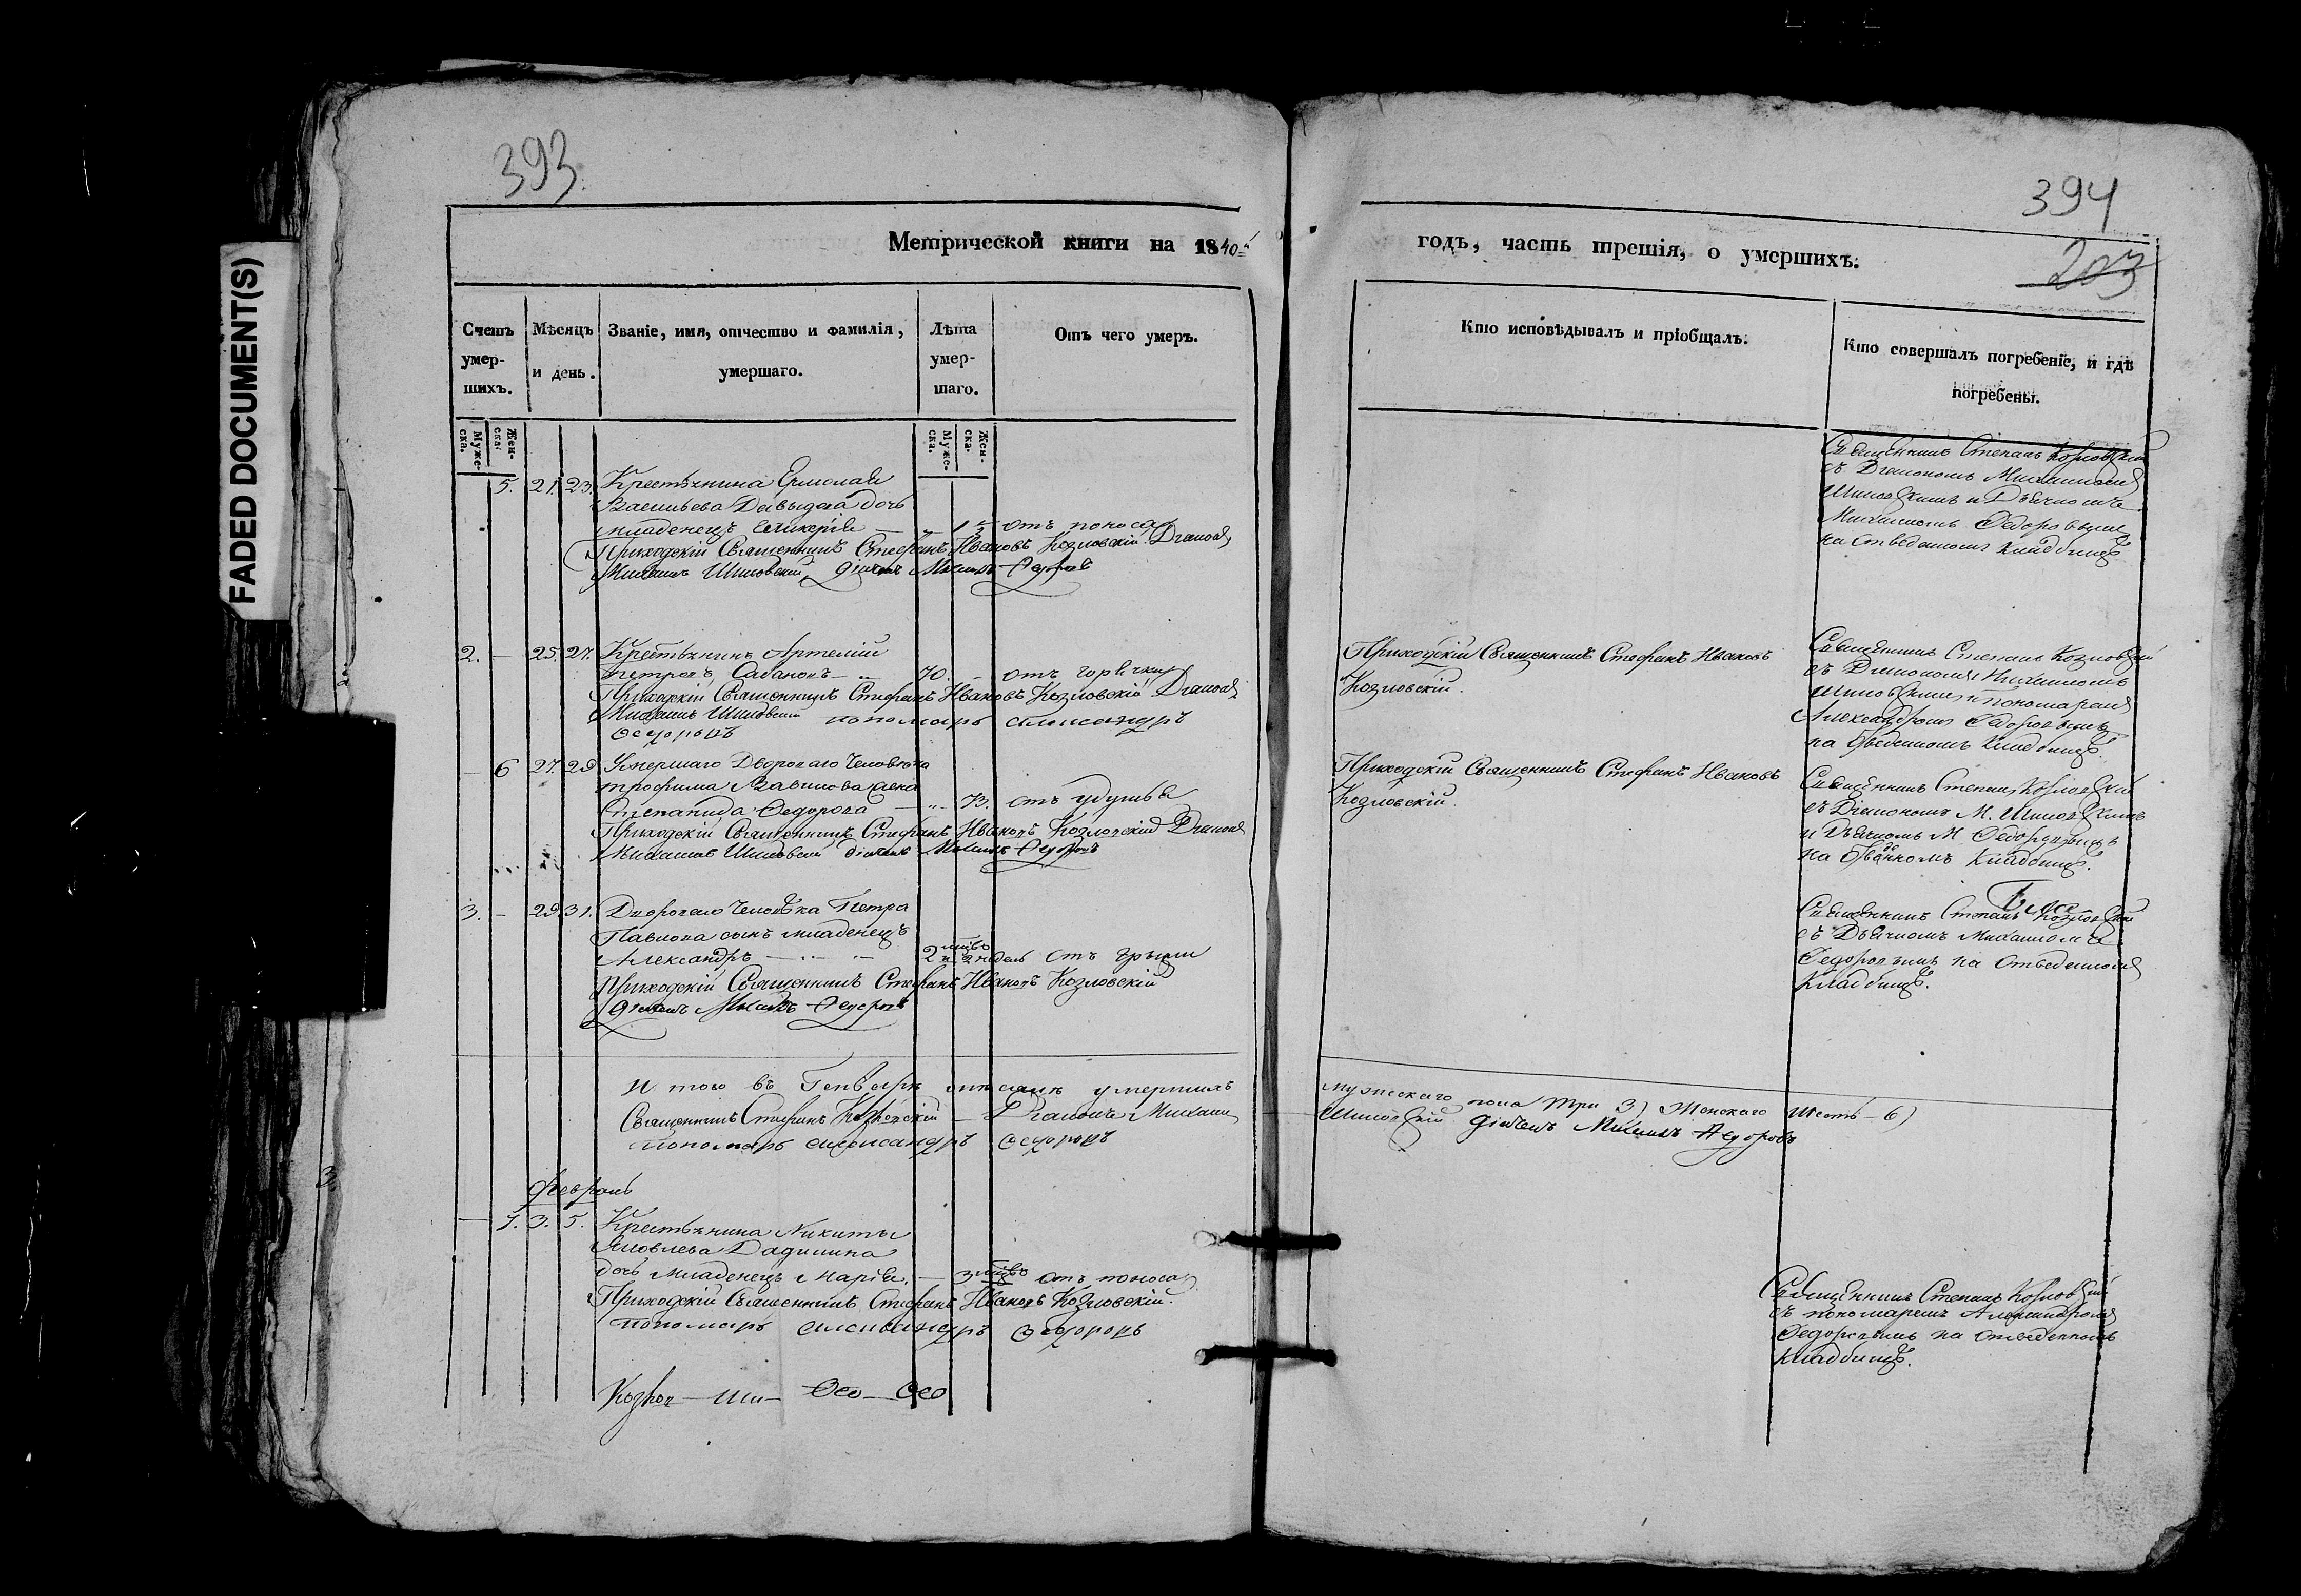 FADED DOCUMENT(S)
393.
394
203
Метрической книги на 1840й
годъ, часть третія, о умершихъ.
Счетъ умер-шихъ.
Мѣсяцъ и день.
Званіе, имя, отчество и фамилія, умершаго.
Лѣта умер-шаго.
Отъ чего умеръ.
Кто исповѣдывалъ и пріобщалъ.
Кто совершалъ погребеніе, и гдѣ погребены.
Муже-ска.
Жен-ска.
Муже-ска.
Жен-ска.
5. 21. 23. Крестьянина Ермолая
Васильева Давыдова дочь
младенецъ Гликерія — „ 1 отъ поноса
Приходскій Священникъ Стефанъ Ивановъ Козловскій. Діаконъ
Михаилъ Шиловскій, дьячекъ Михаилъ Федоровъ
Священникъ Степанъ Козловскій
съ Діакономъ Михаиломъ
Шиловскимъ и Дьячкомъ
Михаиломъ Федоровымъ
на отведенномъ кладбищѣ
2. — 25. 27. Крестьянинъ Артемій
Петровъ Сабановъ — „ 70. — отъ горячки
Приходскій Священникъ Стефанъ Ивановъ Козловскій Діаконъ
Михаилъ Шиловскій пономарь Александръ
Федоровъ
Приходскій Священникъ Стефанъ Ивановъ
Козловскій.
Священникъ Степанъ Козловскій
съ Діакономъ Михаиломъ
Шиловскимъ и Пономаремъ
Александромъ Федоровымъ
на отведенномъ кладбищѣ
— 6 27. 29 Умершаго Двороваго человѣка
Трофима Савинова жена
Степанида Федорова — „ 73. отъ удушья
Приходскій Священникъ Стефанъ Ивановъ Козловскій Діаконъ
Михаилъ Шиловскій дьячекъ Михаилъ Федоровъ
Приходскій Священникъ Стефанъ Ивановъ
Козловскій.
Священникъ Степанъ Козловскій
съ Діакономъ М. Шиловскимъ
и Дьячкомъ М. Федоровымъ
на отведенномъ кладбищѣ.
3. — 29. 31. Двороваго человѣка Петра
Павлова сынъ младенецъ
Александръ — „ — 2 мсцво и 2 недель отъ грыжи
Приходскій Священникъ Стефанъ Ивановъ Козловскій
Дьячекъ Михаилъ Федоровъ
Священникъ Степанъ Козловскій
съ Дьячкомъ Михаиломъ
Федоровымъ на отведенномъ
кладбищѣ.
Итого въ Генварѣ мѣсяцѣ умершихъ мужескаго пола три 3) женскаго шесть — 6)
Священникъ Стефанъ Козловскій — Діаконъ Михаилъ Шиловскій дьячекъ Михаилъ Федоровъ
Пономарь Александръ Федоровъ
Февраль
— 7. 3. 5. Крестьянина Никиты
Яковлева
дочь младенецъ Марія. — 3 мсцво отъ поноса
Приходскій Священникъ Стефанъ Ивановъ Козловскій.
Пономарь Александръ Федоровъ
Священникъ Степанъ Козловскій
съ пономаремъ Александромъ
Федоровымъ на отведенномъ
кладбищѣ.
Козлов — Ши — Фео — Фео